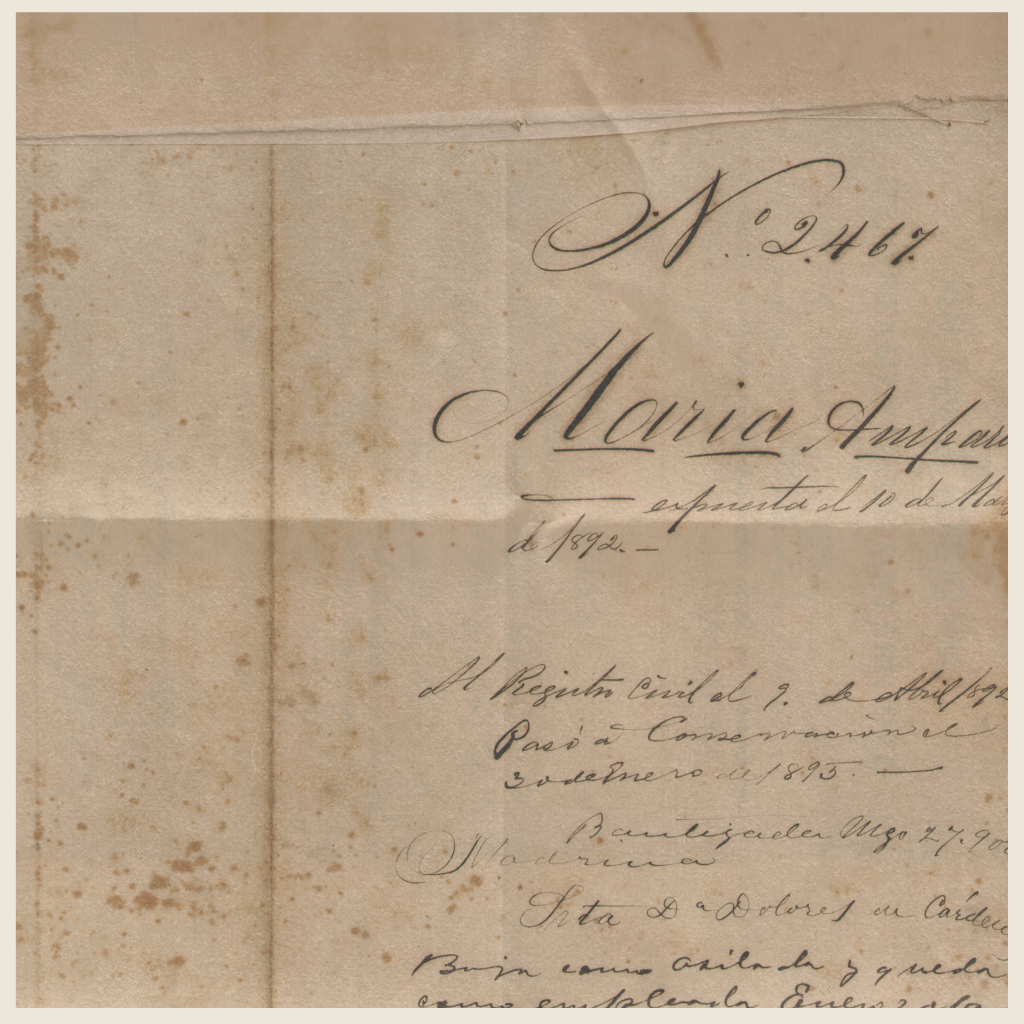 Nº 2.467.
Maria Amparo
expuesta el 10 de
de 1892.—
Al Registro Civil el 9. de Abril 1892
Pasó a Conservacion el
30 de Enero de 1895. —
Bautizada Mzo 27.90
Madrina
Srta Dª Dolores de Cárden
Baja como asilada y queda
como empleada Enero 2